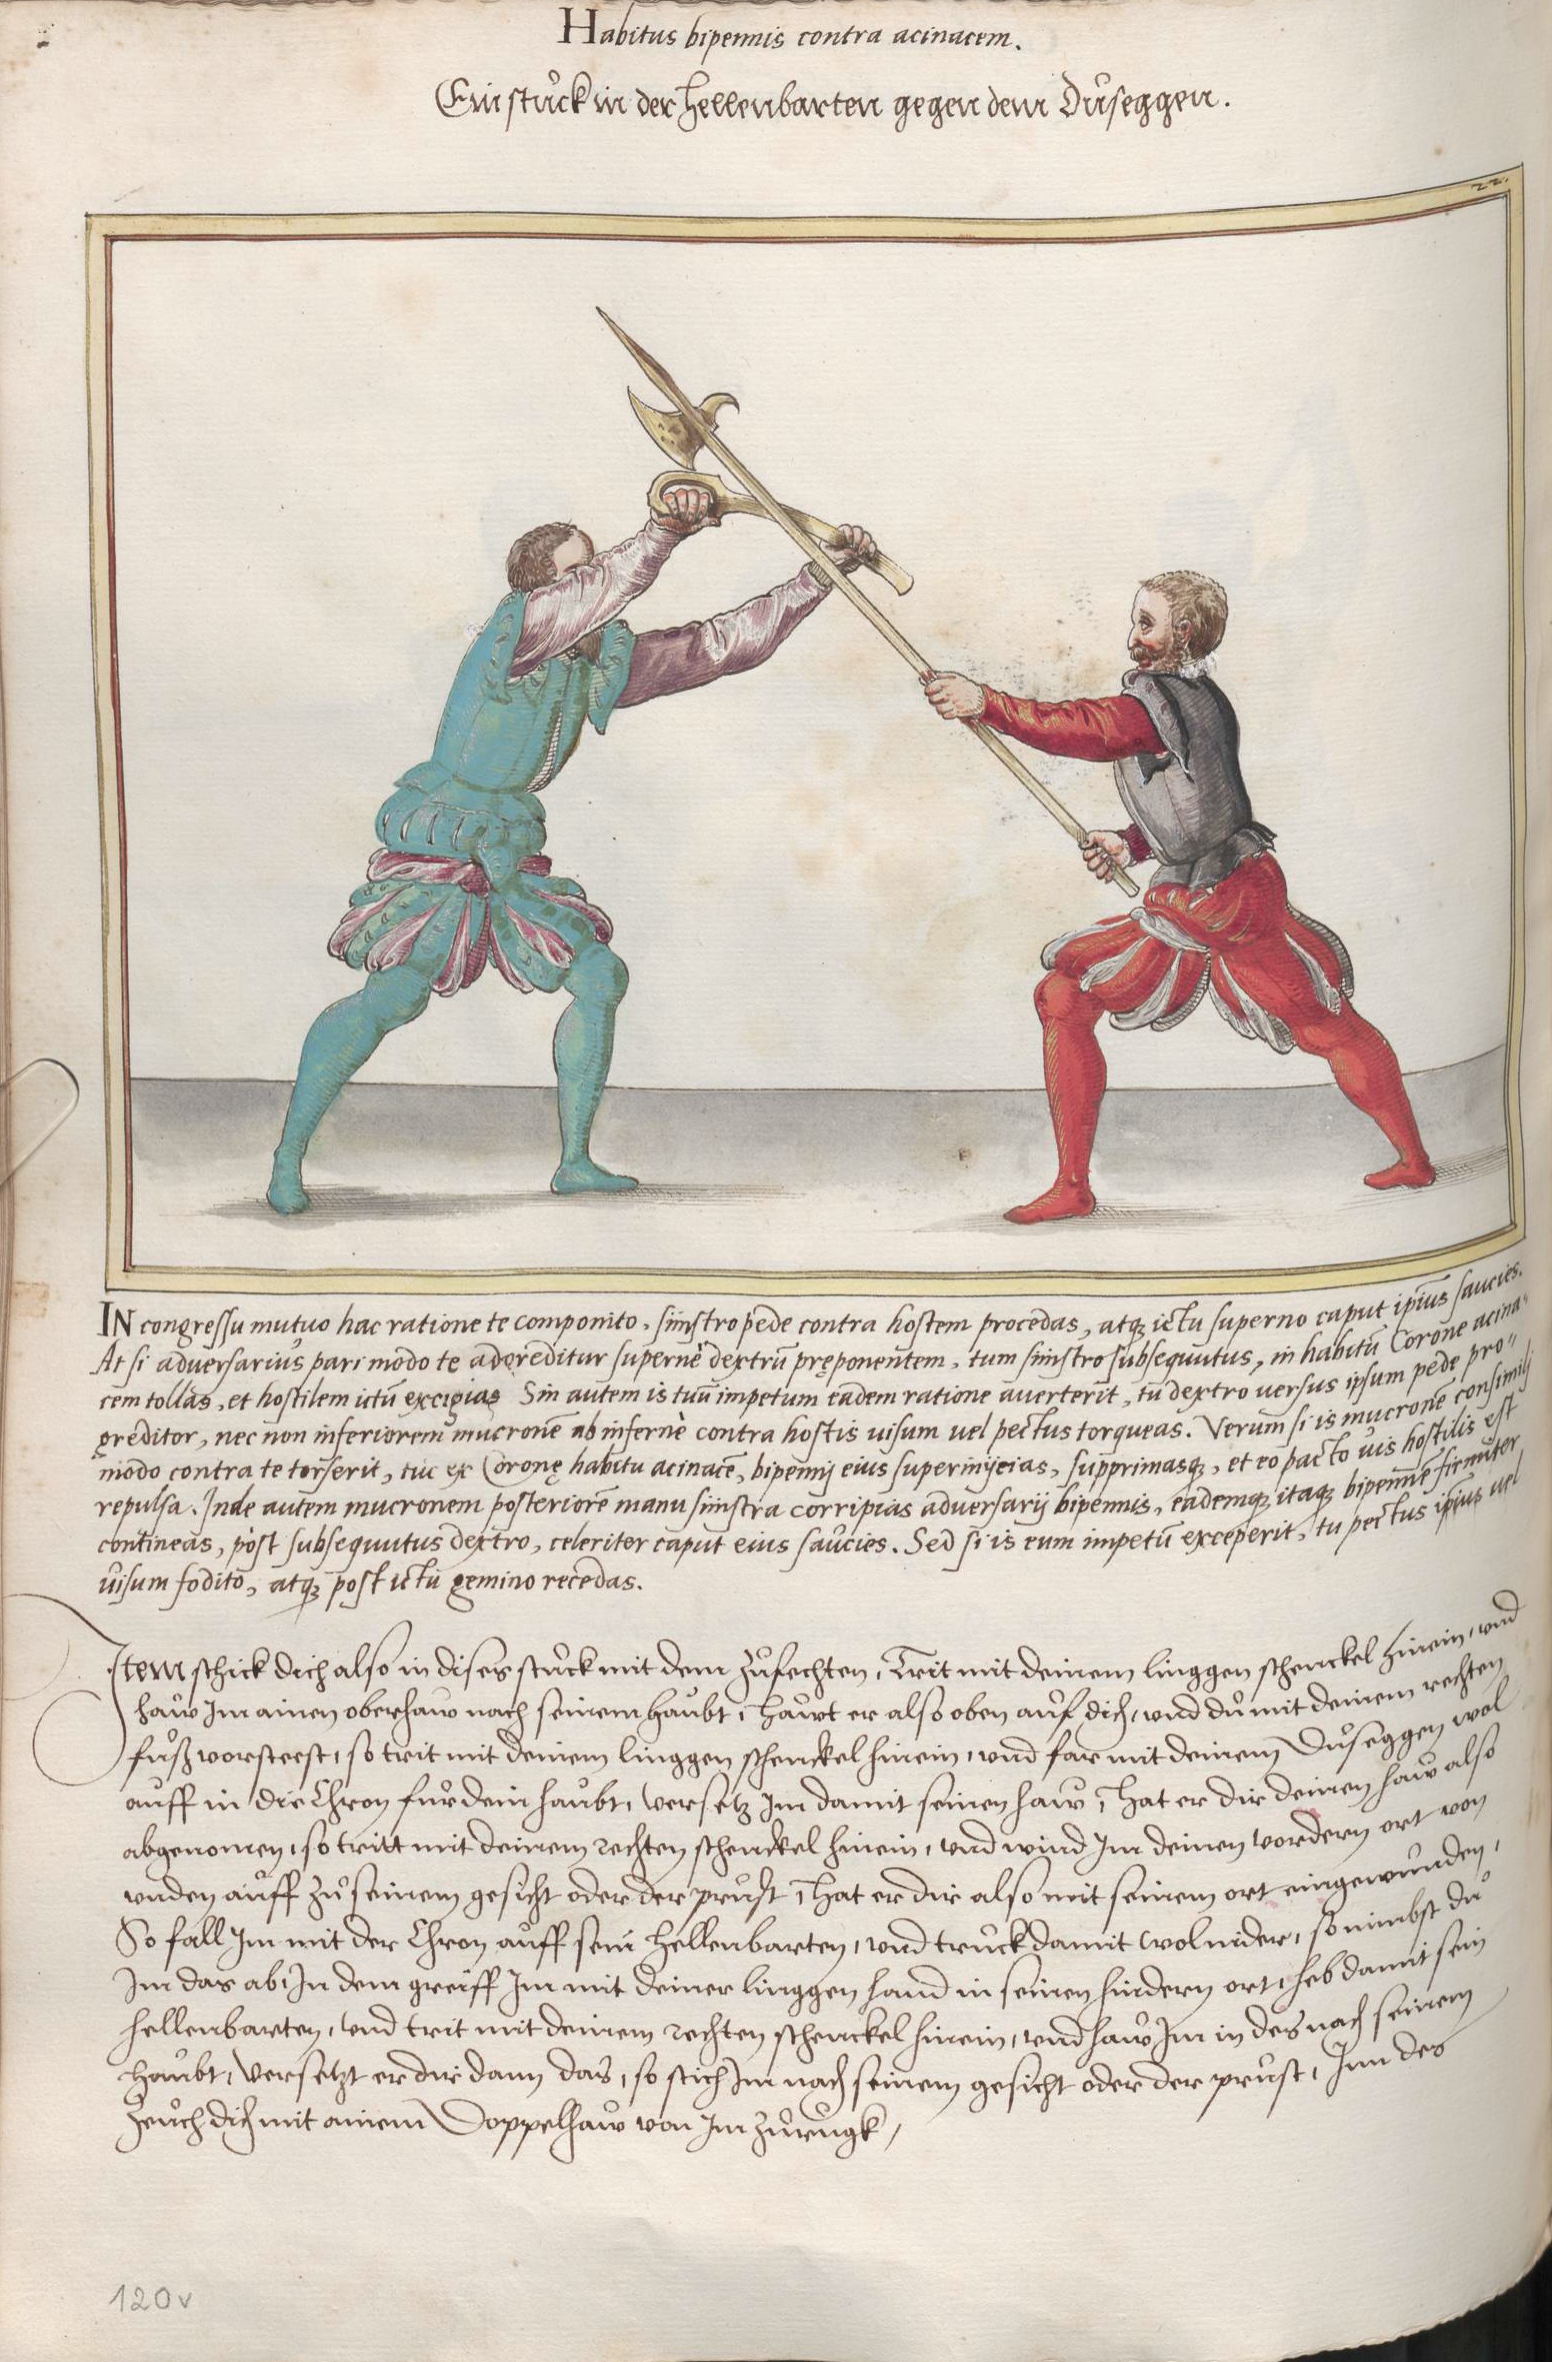 Habitus bipennis contra acinacem.
Ein stuck in der hellenbarten gegen dem Duseggen.
22.
IN congressu mutuo hac ratione te componito. sinistro pede contra hostem procedas, atqꝫ ictu superno caput ipsius saucies.
At si adversarius pari modo te adgreditur supernè dextrū pręponentem, tum sinistro subsequutus, in habitū Coronę acina-
cem tollas, et hostilem ictū excipias Sin autem is tuū impetum eadem ratione averterit, tu dextro versus ipsum pede pro-
greditor, nec non inferiorem mucronē ab infernè contra hostis visum vel pectus torqueas. Verum si is mucronē consimili
modo contra te torserit, tūc ex Coronę habitu acinacē, bipenni eius superinijcias, supprimasqꝫ, et eo pacto vis hostilis est
repulsa. Inde autem mucronem posteriorē manu sinistra corripias adversarij bipennis, eademqꝫ itaqꝫ bipennē firmiter
contineas, pòst subsequutus dextro, celeriter caput eius saucies. Sed si is eum impetū exceperit, tu pectus ipsius vel
visum fodito, atqꝫ post ictū gemino recedas.
Item schick dich also in dises stuck mit dem zufechten, Trit mit deinem linggen schenckel hinein, und
haw Im ainen oberhaw nach seinem haubt, hawt er also oben auf dich, und du mit deinem rechten
fuß vorsteest, so trit mit deinem linggen schenckel hinein, und far mit deinem Duseggen wol
auff in die Chron für dein haubt, versetz Im damit seinen haw, hat er dir deinen haw also
abgenomen, so tritt mit deinem rechten schenckel hinein, und wind Im deinen vordern ort von
unden auff zu seinem gesicht oder der prust, hat er dir also mit seinem ort eingewunden,
So fall Im mit der Chron auff sein hellenbarten, und truck damit wol nider, so nimbst du
Im das ab, In dem greiff Im mit deiner linggen hand in seinen hindern ort, heb damit sein
hellenbarten, und trit mit deinem rechten schenckel hinein, und haw Im in des nach seinem
haubt, versetzt er dir dann das, so stich Im nach seinem gesicht oder der prust, Inn des
zeuch dich mit ainem Doppelhaw von Im zurugk,
120v